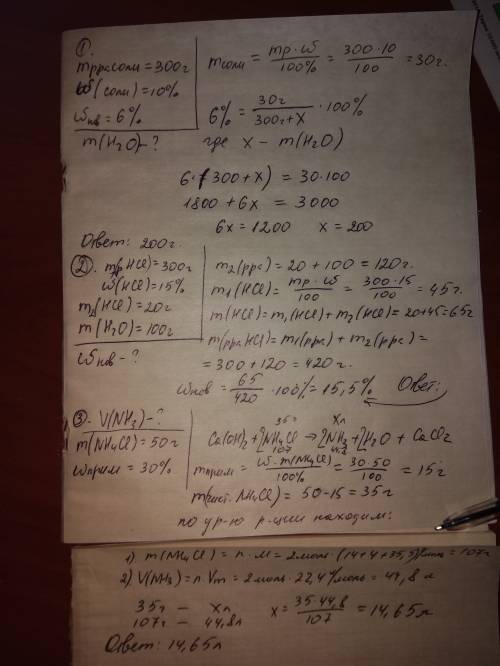 ①.
mрра соли = 300г
ω(соли) = 10%
ωнв = 6%
m(H₂O) - ?
mсоли = mр·ω/100% = 300·10/100 = 30г.
6% = 30г/300г+x · 100%
где x – m(H₂O)
6·(300+x) = 30·100
1800 + 6x = 3000
6x = 1200 x = 200
Ответ: 200г.
②. m₁(рHCl) = 300г
ω(HCl) = 15%
m₂(HCl) = 20г
m(H₂O) = 100г
ωнв - ?
m₂(ррс) = 20 + 100 = 120г.
m₁(HCl) = mр·ω/100 = 300·15/100 = 45г.
m(HCl) = m₁(HCl) + m₂(HCl) = 20+45 = 65г
m(рра HCl) = m₁(ррс) + m₂(ррс) =
= 300 + 120 = 420г.
ωнов = 65/420 · 100% = 15,5% Ответ:
③. V(NH₃) - ?
m(NH₄Cl) = 50г
ωприм = 30%
35г xл
Ca(OH)₂ + 2NH₄Cl → 2NH₃ + 2H₂O + CaCl₂
107 44,8
mприм = ω·m(NH₄Cl)/100% = 30·50/100 = 15г
m(чист. NH₄Cl) = 50-15 = 35г
по ур-ю р-ции находим:
1) m(NH₄Cl) = n·M = 2моль·(14+4+35,5)г/моль = 107г
2) V(NH₃) = n·Vm = 2моль·22,4л/моль = 44,8 л
35г – xл
107г – 44,8л
x = 35·44,8/107 = 14,65л
Ответ: 14,65л